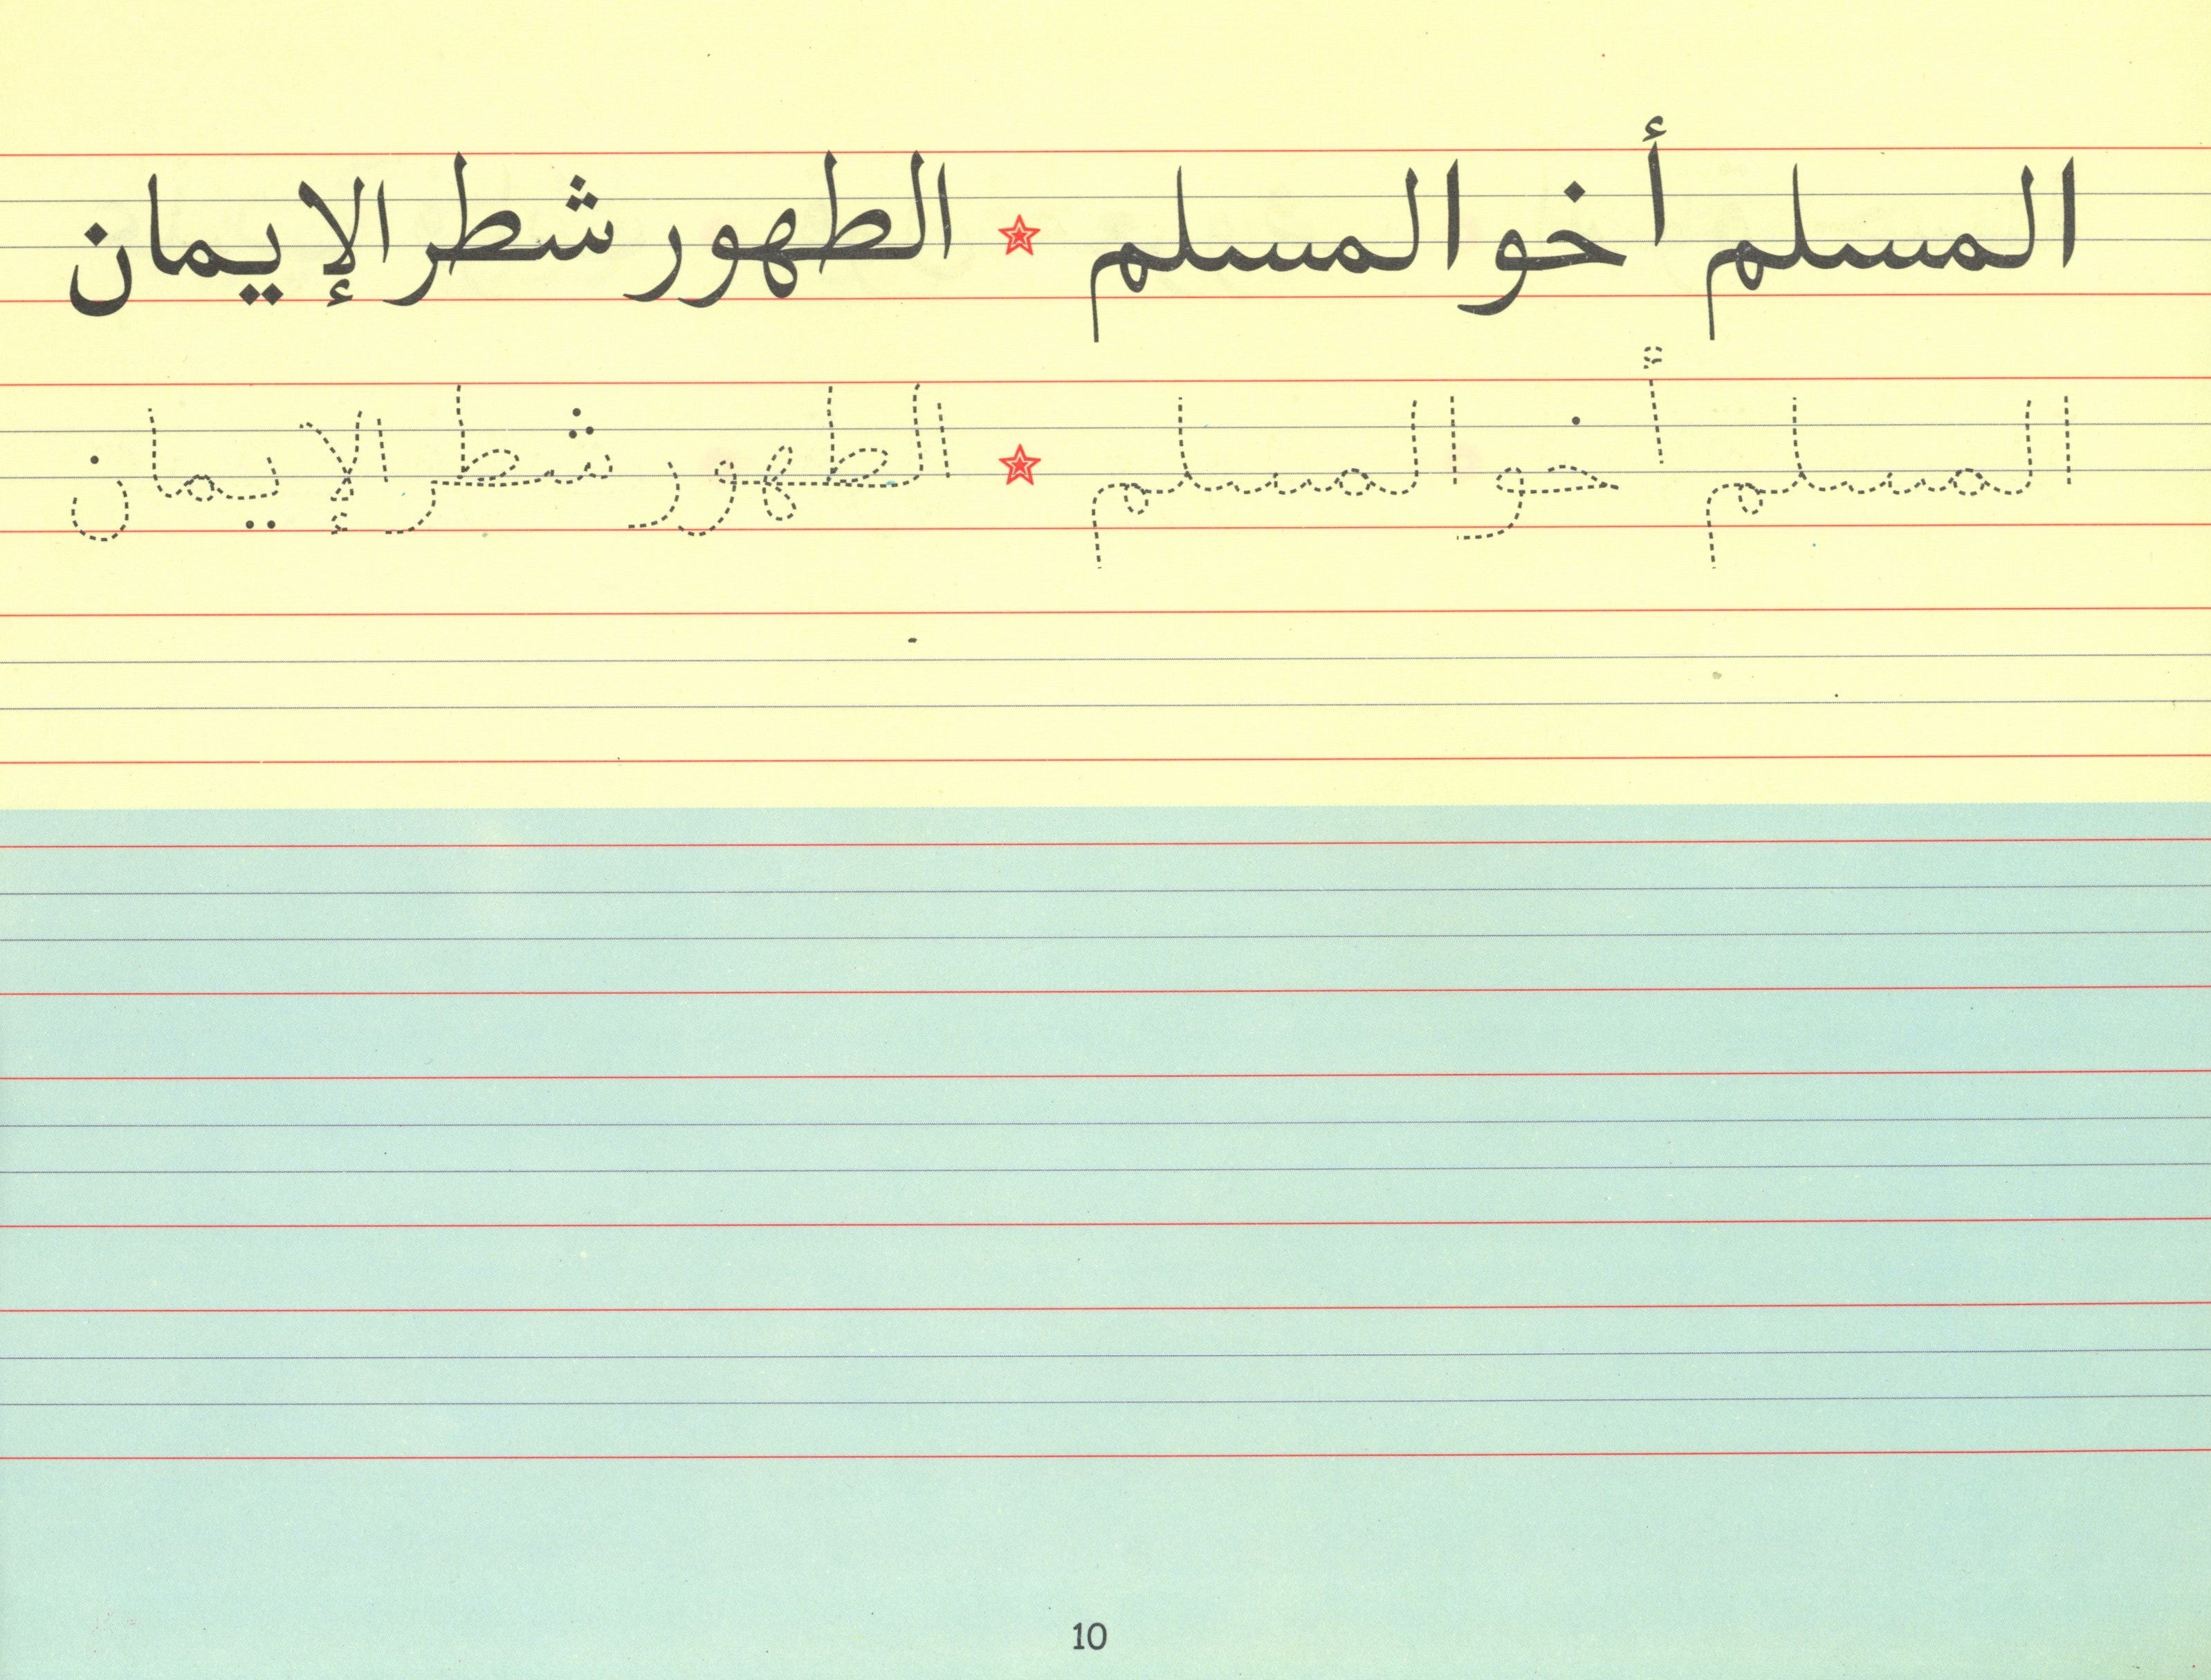 المسلم أخو المسلم ☆ الطهور شطر الإيمان
المسلم أخو المسلم ☆ الطهور شطر الإيمان
10